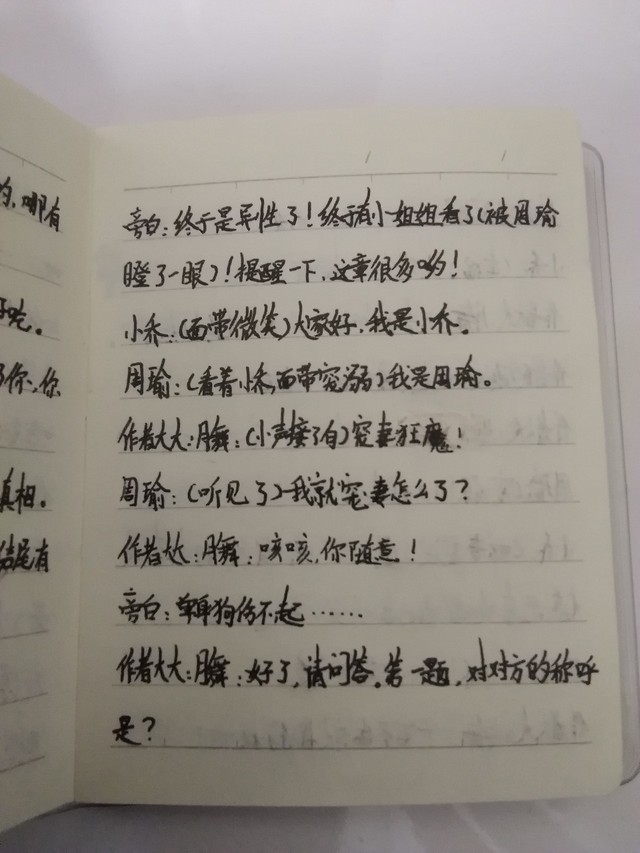 的，哪有
好吃。
了你，你
真相。
结尾有
旁白：终于是异性了！终于有小姐姐看了（被周瑜
瞪了一眼）！提醒一下，这章很多哟！
小乔：（面带微笑）大家好，我是小乔。
周瑜：（看着小乔，面带宠溺）我是周瑜。
作者大大：月舞：（小声接了句）宠妻狂魔！
周瑜：（听见了）我就宠妻怎么了？
作者大大：月舞：咳咳，你随意！
旁白：单身狗伤不起……
作者大大：月舞：好了，请问答。第一题，对对方的称呼
是？